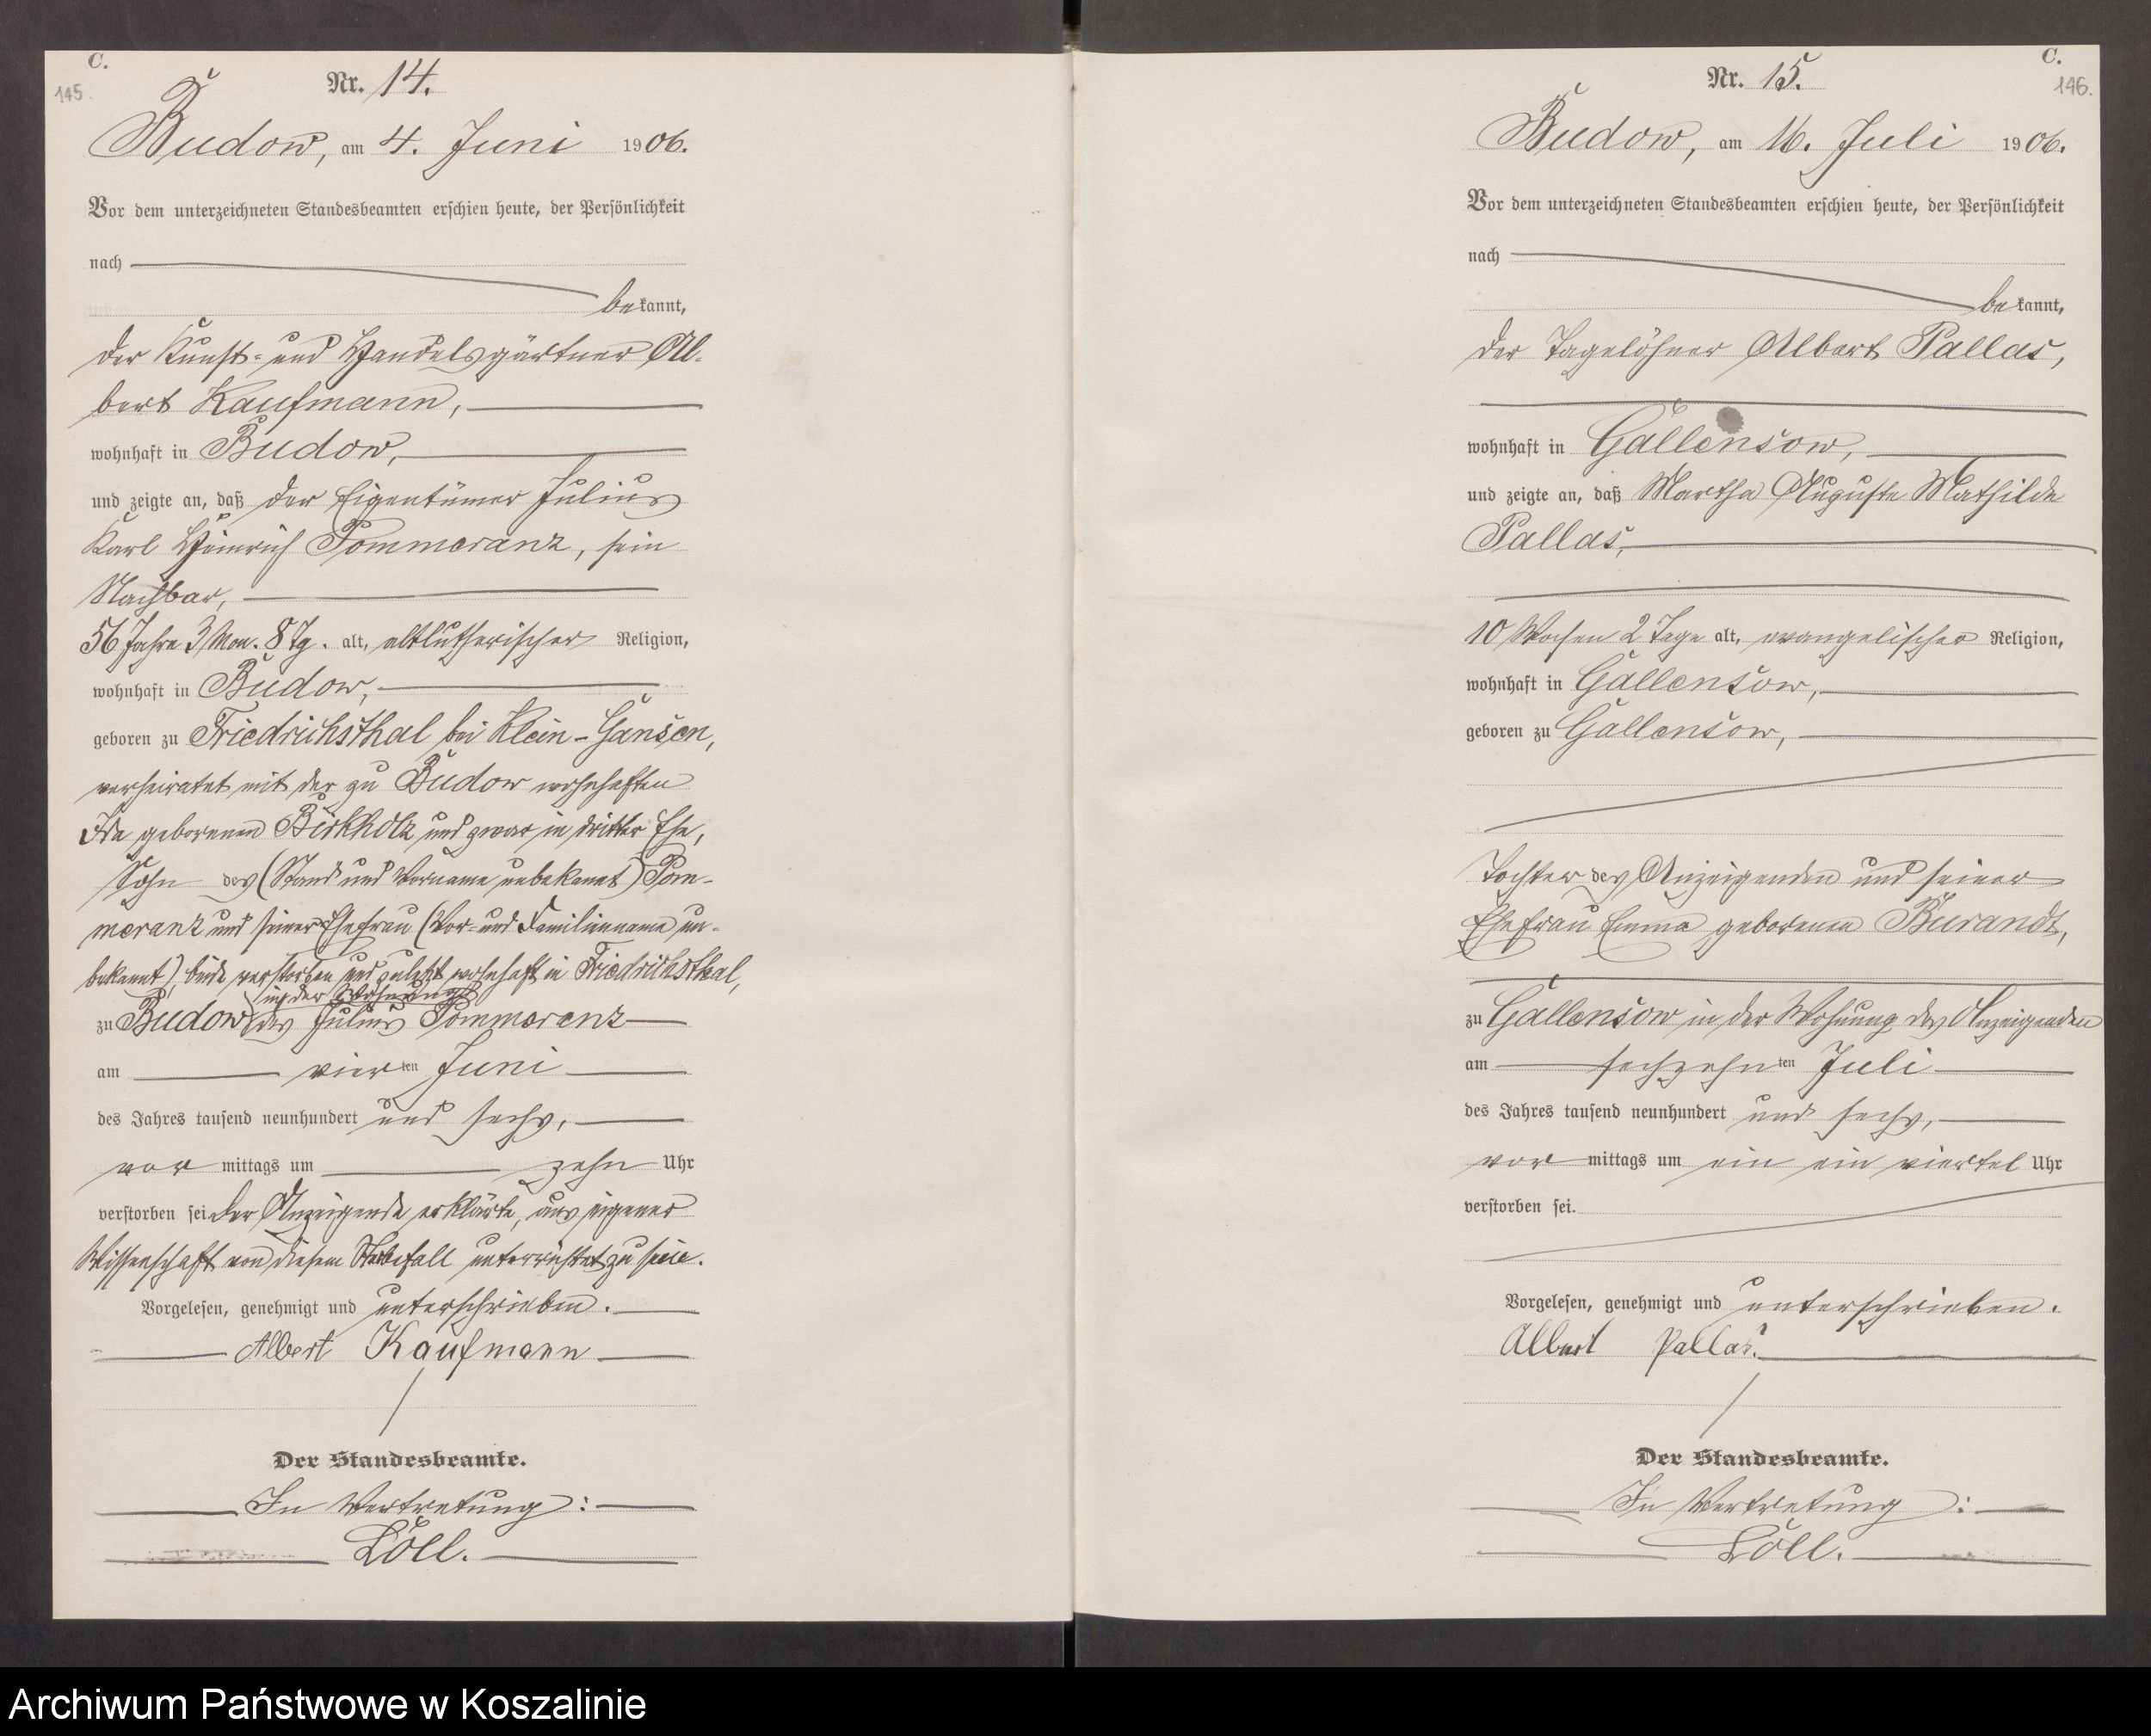 C.
145.
Nr. 14.
Budow, am 4. Juni 1906.
Vor dem unterzeichneten Standesbeamten erschien heute, der Persönlichkeit
nach
bekannt,
der Kunst- und Handelsgärtner Al-
bert Kaufmann,
wohnhaft in Budow,
und zeigte an, daß der Eigentümer Julius
Karl Heinrich Pommeranz, sein
Nachbar,
56 Jahre 3 Mon. 8 Tg. alt, altlutherischer Religion,
wohnhaft in Budow,
geboren zu Friedrichsthal bei Klein-Gansen,
verheiratet mit der zu Budow wohnhaften
Ida geborenen Birkholz und zwar in dritter Ehe,
Sohn des (Stand und Vorname unbekannt) Pom-
meranz und seiner Ehefrau (Vor- und Familienname un-
bekannt), beide verstorben und zuletzt wohnhaft in Friedrichsthal,
in der Wohnung
zu Budow des Julius Pommeranz
am vierten Juni
des Jahres tausend neunhundert und sechs,
vor mittags um zehn Uhr
verstorben sei. Der Anzeigende erklärte, aus eigener
Wissenschaft von diesem Sterbefall unterrichtet zu sein.
Vorgelesen, genehmigt und unterschrieben.
Albert Kaufmann
Der Standesbeamte.
In Vertretung:
Löll.
C.
146.
Nr. 15.
Budow, am 16. Juli 1906.
Vor dem unterzeichneten Standesbeamten erschien heute, der Persönlichkeit
nach
bekannt,
der Tagelöhner Albert Pallas,
wohnhaft in Gallensow,
und zeigte an, daß Martha Auguste Mathilde
Pallas,
10 Wochen 2 Tage alt, evangelischer Religion,
wohnhaft in Gallensow,
geboren zu Gallensow,
Tochter des Anzeigenden und seiner
Ehefrau Emma geborenen Burandt,
zu Gallensow in der Wohnung des Anzeigenden
am sechzehnten Juli
des Jahres tausend neunhundert und sechs,
vor mittags um ein ein viertel Uhr
verstorben sei.
Vorgelesen, genehmigt und unterschrieben.
Albert Pallas.
Der Standesbeamte.
In Vertretung:
Löll.
Archiwum Państwowe w Koszalinie